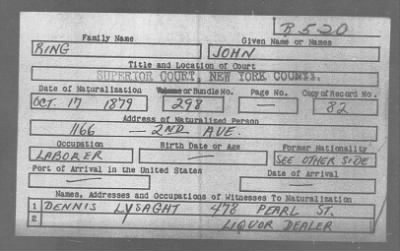 R520
Family Name Given Name or Names
RING JOHN
Title and Location of Court
SUPERIOR COURT, NEW YORK COUNTY.
Date of Naturalization Volume or Bundle No. Page No. Copy of Record No.
OCT. 17 1879 298 — 82
Address of Naturalized Person
1166 — 2ND AVE.
Occupation Birth Date or Age Former Nationality
LABORER — SEE OTHER SIDE
Port of Arrival in the United States Date of Arrival
— —
Names, Addresses and Occupations of Witnesses To Naturalization
1 DENNIS LYSAGHT 478 PEARL ST.
2 LIQUOR DEALER